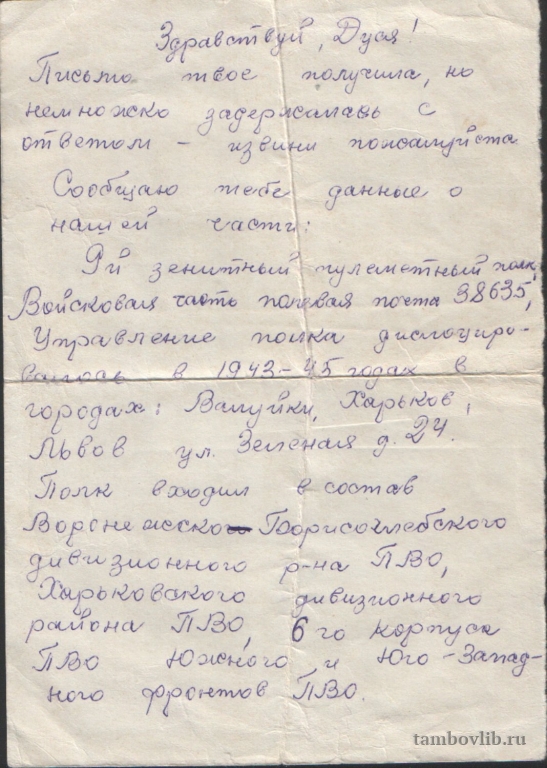 Здравствуй, Дуся!
Письмо твое получила, но
немножко задержалась с
ответом – извини пожалуйста
Сообщаю тебе данные о
нашей части:
9й зенитный пулеметный полк,
Войсковая часть полевая почта 38635,
Управление полка дислоциро-
валось в 1943-45 годах в
городах: Валуйки, Харьков,
Львов ул. Зеленая д. 24.
Полк входил в состав
Воронежско Борисоглебского
дивизионного р-на ПВО,
Харьковского дивизионного
района ПВО, 6го корпуса
ПВО Южного и Юго-Запад-
ного фронтов ПВО.
tambovlib.ru